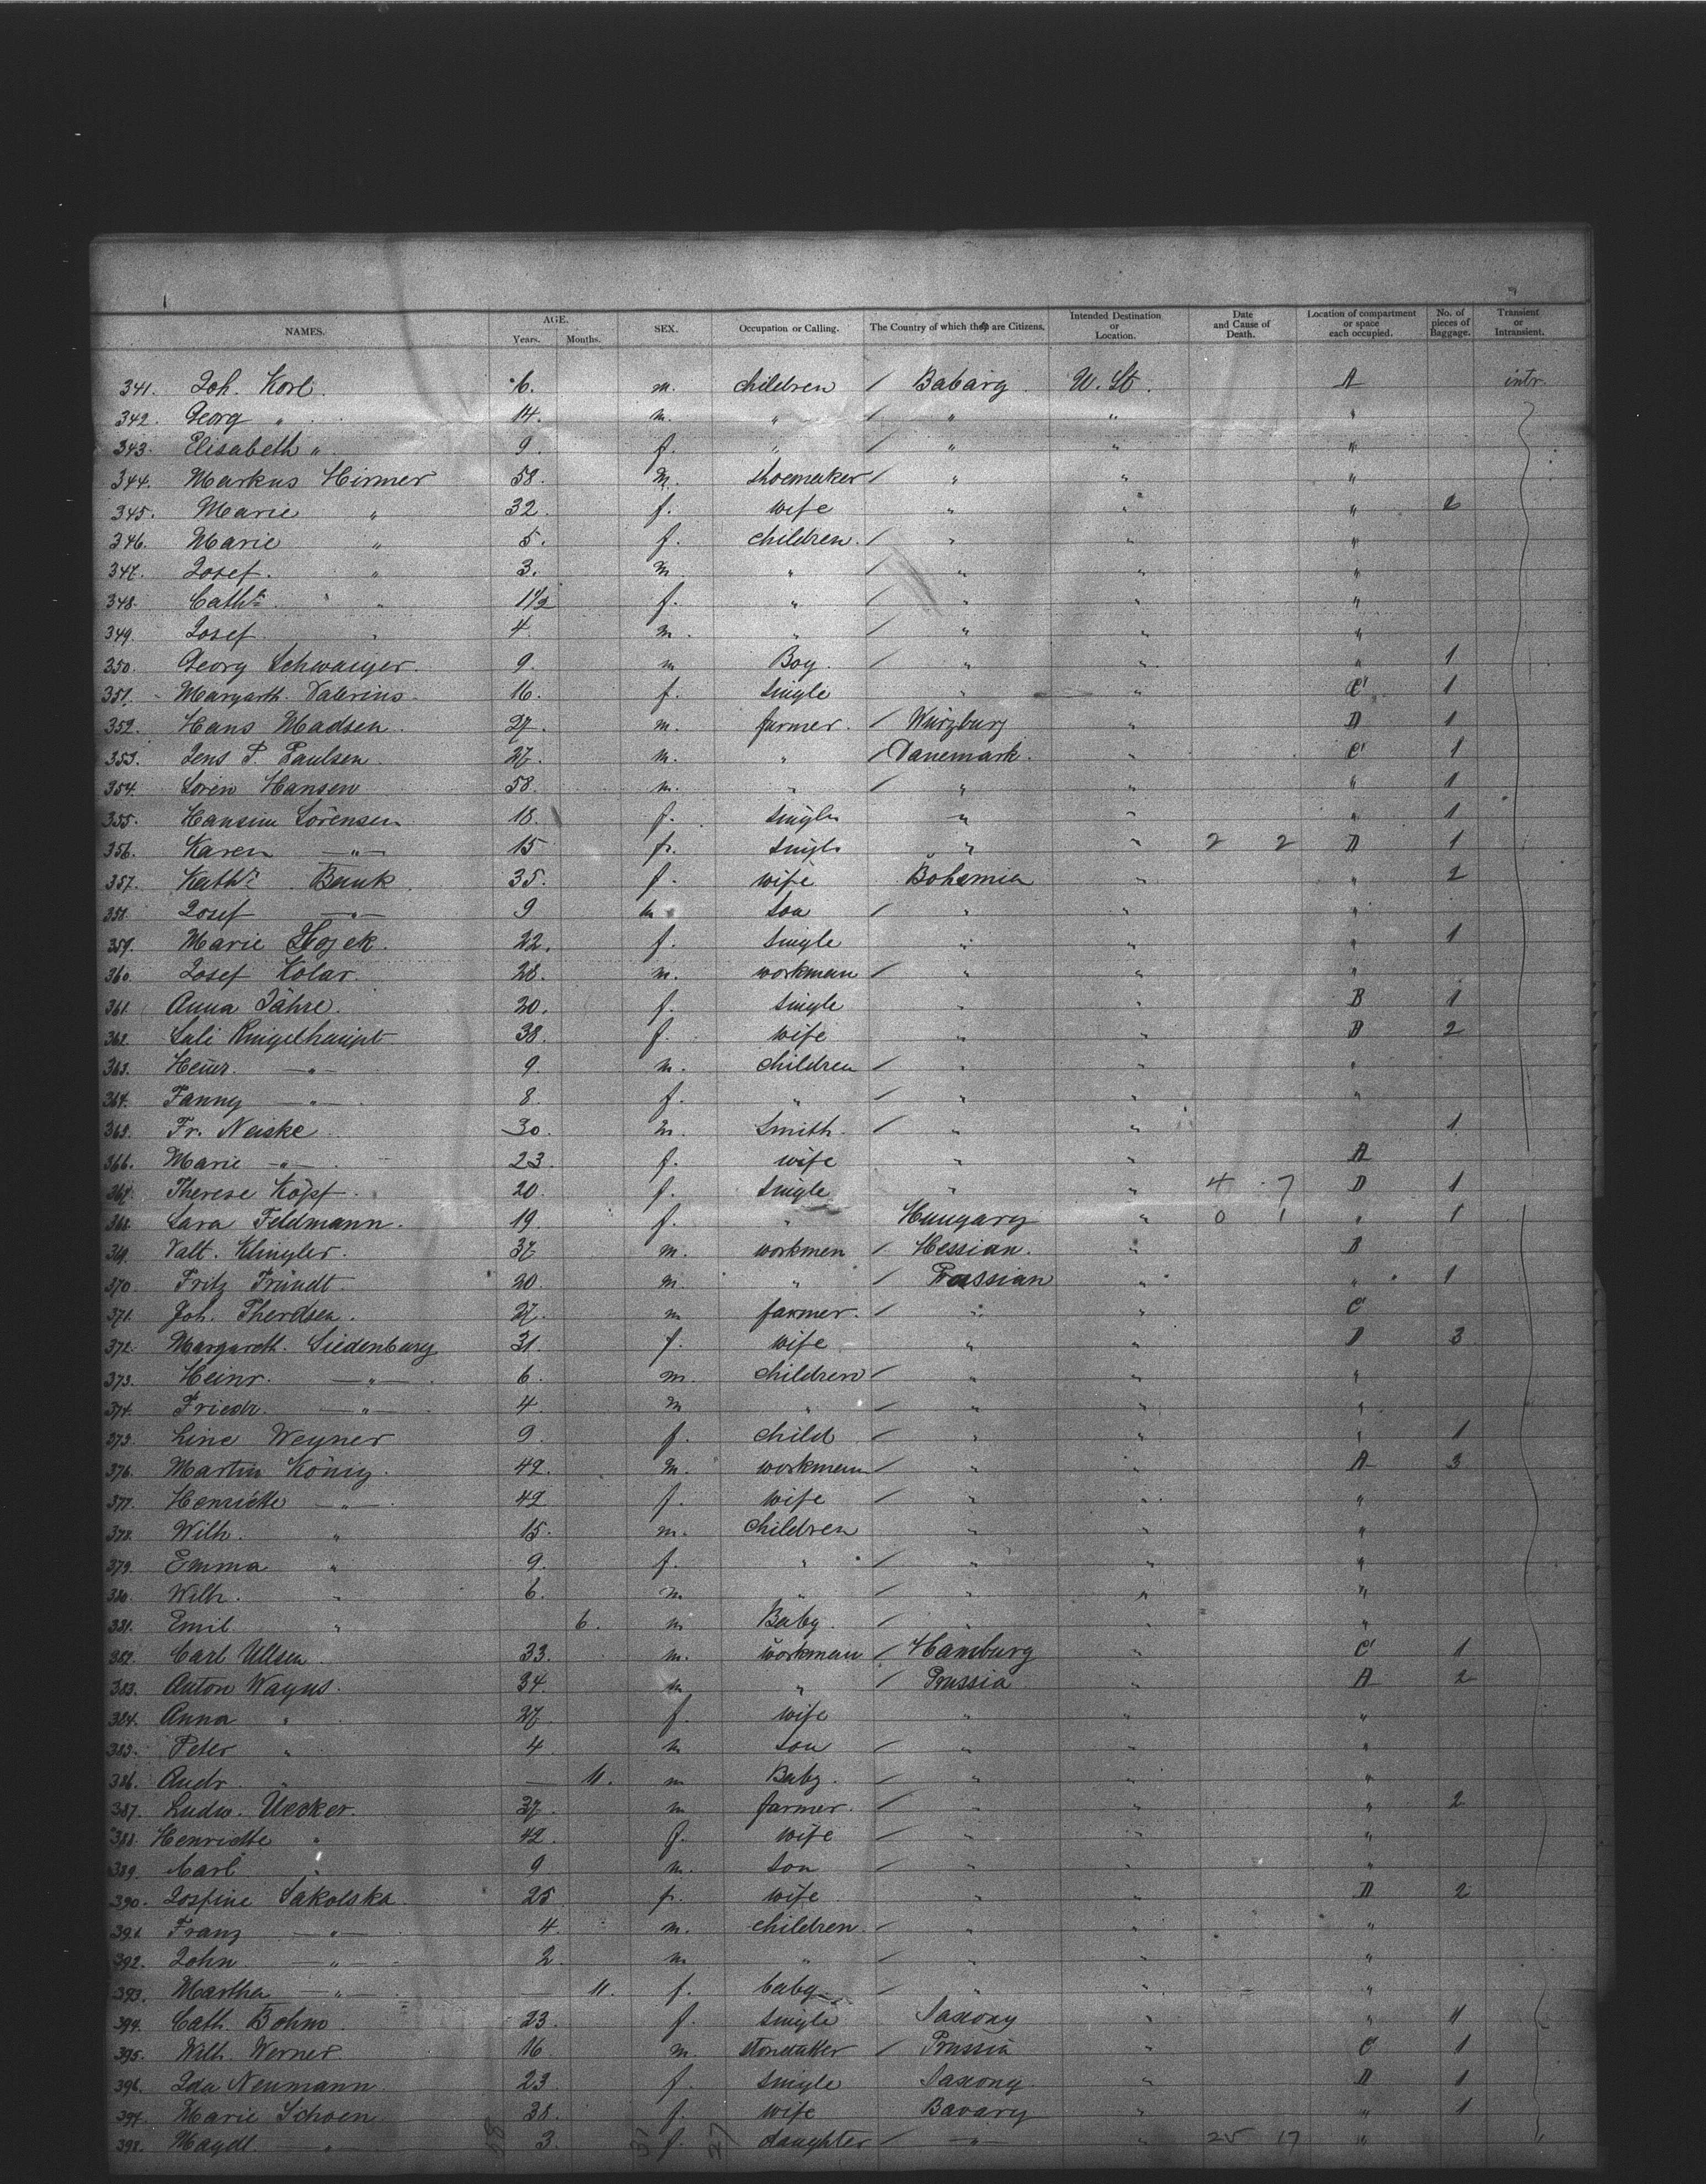 NAMES. AGE. Years. Months. SEX. Occupation or Calling. The Country of which they are Citizens. Intended Destination or Location. Date and Cause of Death. Location of compartment or space each occupied. No. of pieces of Baggage. Transient or Intransient.
341. Joh. Korl 6. m. children / Babarg. U. St. A intr.
342. Georg " 14. m. " / " " "
343. Elisabeth " 9. f. " / " " "
344. Markus Hirmer 58. m. shoemaker / " " "
345. Marie " 32. f. wife " " " 2
346. Marie " 5. f. children. / " " "
347. Josef. " 3. m " / " " "
348. Cath. " 1 1/2 f. " / " " "
349. Josef " 4. m. " / " " "
350. Georg Schwaiger. 9. m Boy. / " " " 1
351. Margarth. Valerius 16. f. single " " C 1
352. Hans Madsen 27. m. farmer. / Würzburg " D 1
353. Jens P. Paulsen 27. m. " / Danemark. " C 1
354. Sören Hansen 58. m. " / " " " 1
355. Hansine Sörensen 18. f. single " " " 1
356. Karen —"— 15 f. single " " 2 2 D 1
357. Kath. Bank 35. f. wife Bohemia " " 2
358. Josef —"— 9 m son / " " "
359. Marie Hojek. 22. f. single " " " 1
360. Josef Kolar. 28. m. workman / " " "
361. Anna Jähre. 20. f. single " " B 1
362. Sali Ringelhaupt 38. f. wife " " D 2
363. Heinr. —"— 9. m. children / " " "
364. Fanny —"— 8. f. " / " " "
365. Fr. Neiske 30. m. Smith. / " " 1
366. Marie —"— 23. f. wife " " A
367. Therese Köpf. 20. f. single " " 4 7 D 1
368. Sara Feldmann. 19. f. " Hungary " 0 1 " 1
369. Valt. Klingler. 37. m. workmen / Hessian. " D
370. Fritz Fründt. 20. m. " / Prussian " " 1
371. Joh. Therdsen. 27. m farmer. / " " C
372. Margareth. Siedenburg 31. f. wife " " D 3
373. Heinr. —"— 6. m. children / " " "
374. Friedr. —"— 4. m " / " " "
375. Line Weyner 9. f. child / " " " 1
376. Martin König. 42. m. workman / " " A 3
377. Henriette —"— 42 f. wife / " " "
378. Wilh. " 15. m. children " " "
379. Emma " 9. f. " / " " "
380. Wilh. " 6. m. " / " " "
381. Emil " 6. m. Baby. / " " "
382. Carl Ullsen 33. m. workman / Hamburg " C 1
383. Anton Wayns. 34. m " / Prussia " A 2
384. Anna " 27. f. wife " " "
385. Peter " 4. m son / " " "
386. Andr. " — 11. m Baby. / " " "
387. Ludw. Uecker. 37. m farmer. / " " " 2
388. Henriette " 42. f. wife / " " "
389. Carl " 9. m. son / " " "
390. Josfine Sakolska 25 f. wife " " D 2
391. Franz —"— 4. m. children. / " " "
392. John —"— 2. m. " / " " "
393. Martha —"— — 11. f. baby / " " "
394. Cath. Bohm 23. f. single Saxony " " 11
395. Wilh. Werner. 16. m. stonecutter / Prussia " C 1
396. Ida Neumann 23. f. single Saxony " D 1
397. Marie Schoen 38. f. wife Bavary " " 1
398. Magdl. —"— 3. f. daughter / —"— " 25 17 "